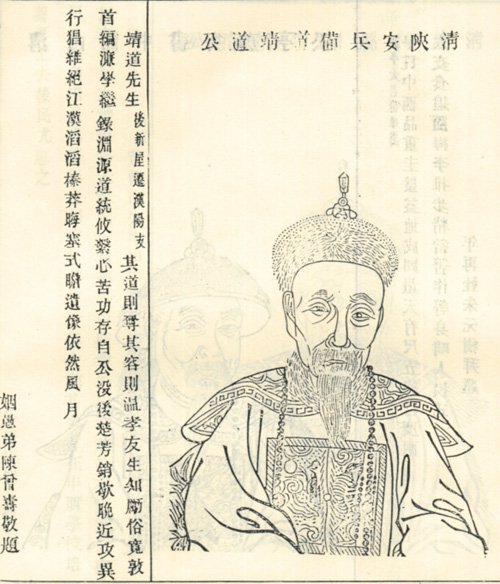 清陝安兵備道靖道公
靖道先生後新屋遷漢陽支其道則尊其容則溫孝友生知勵俗寬敦
首編濂學繼錄淵源道統攸繫心苦功存自公沒後楚芳銷歇耽近攻異
行猖維絕江漢滔滔榛莽晦塞式瞻遺像依然風月
姻愚弟陳曾壽敬題